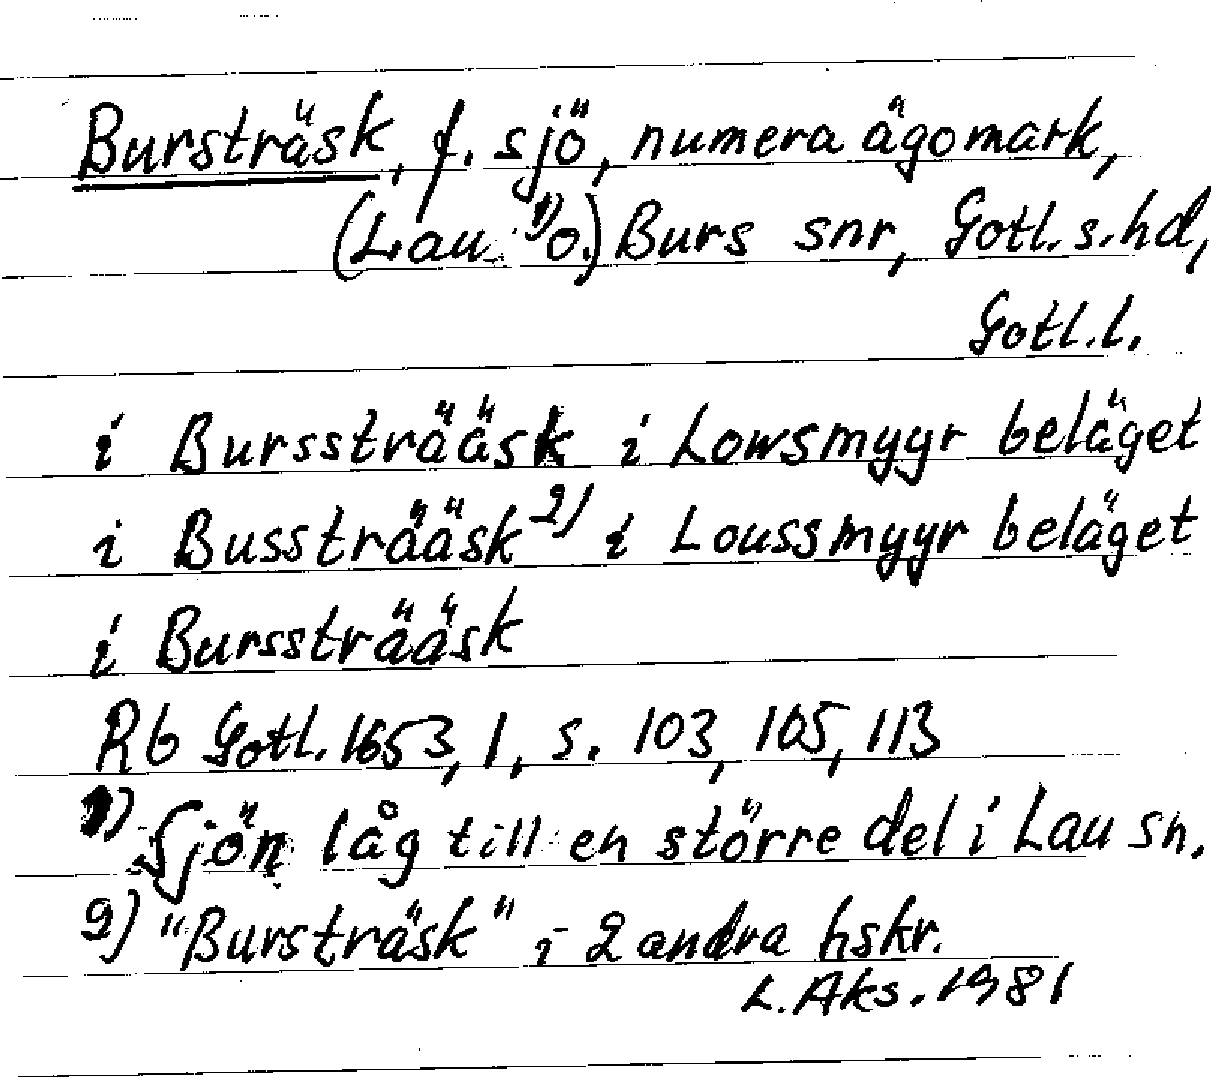 Bursträsk, f. sjö, numera ägomark,
(Lau 1) o.) Burs snr, Gotl. s. hd,
Gotl. l.
i Burssträäsk i Lowsmyyr beläget
i Bussträäsk 2) i Loussmyyr beläget
i Burssträäsk
Rb Gotl. 1653, 1, s. 103, 105, 113
1) Sjön låg till en större del i Lau sn.
2) "Bursträsk" i 2 andra hskr.
L. Aks. 1981